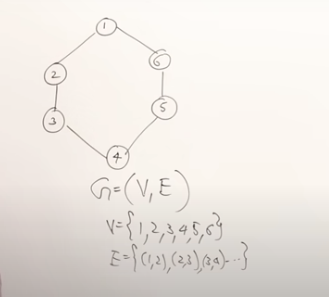 1
2
6
3
5
4
G=(V,E)
V={1,2,3,4,5,6}
E={(1,2),(2,3),(3,4)---}